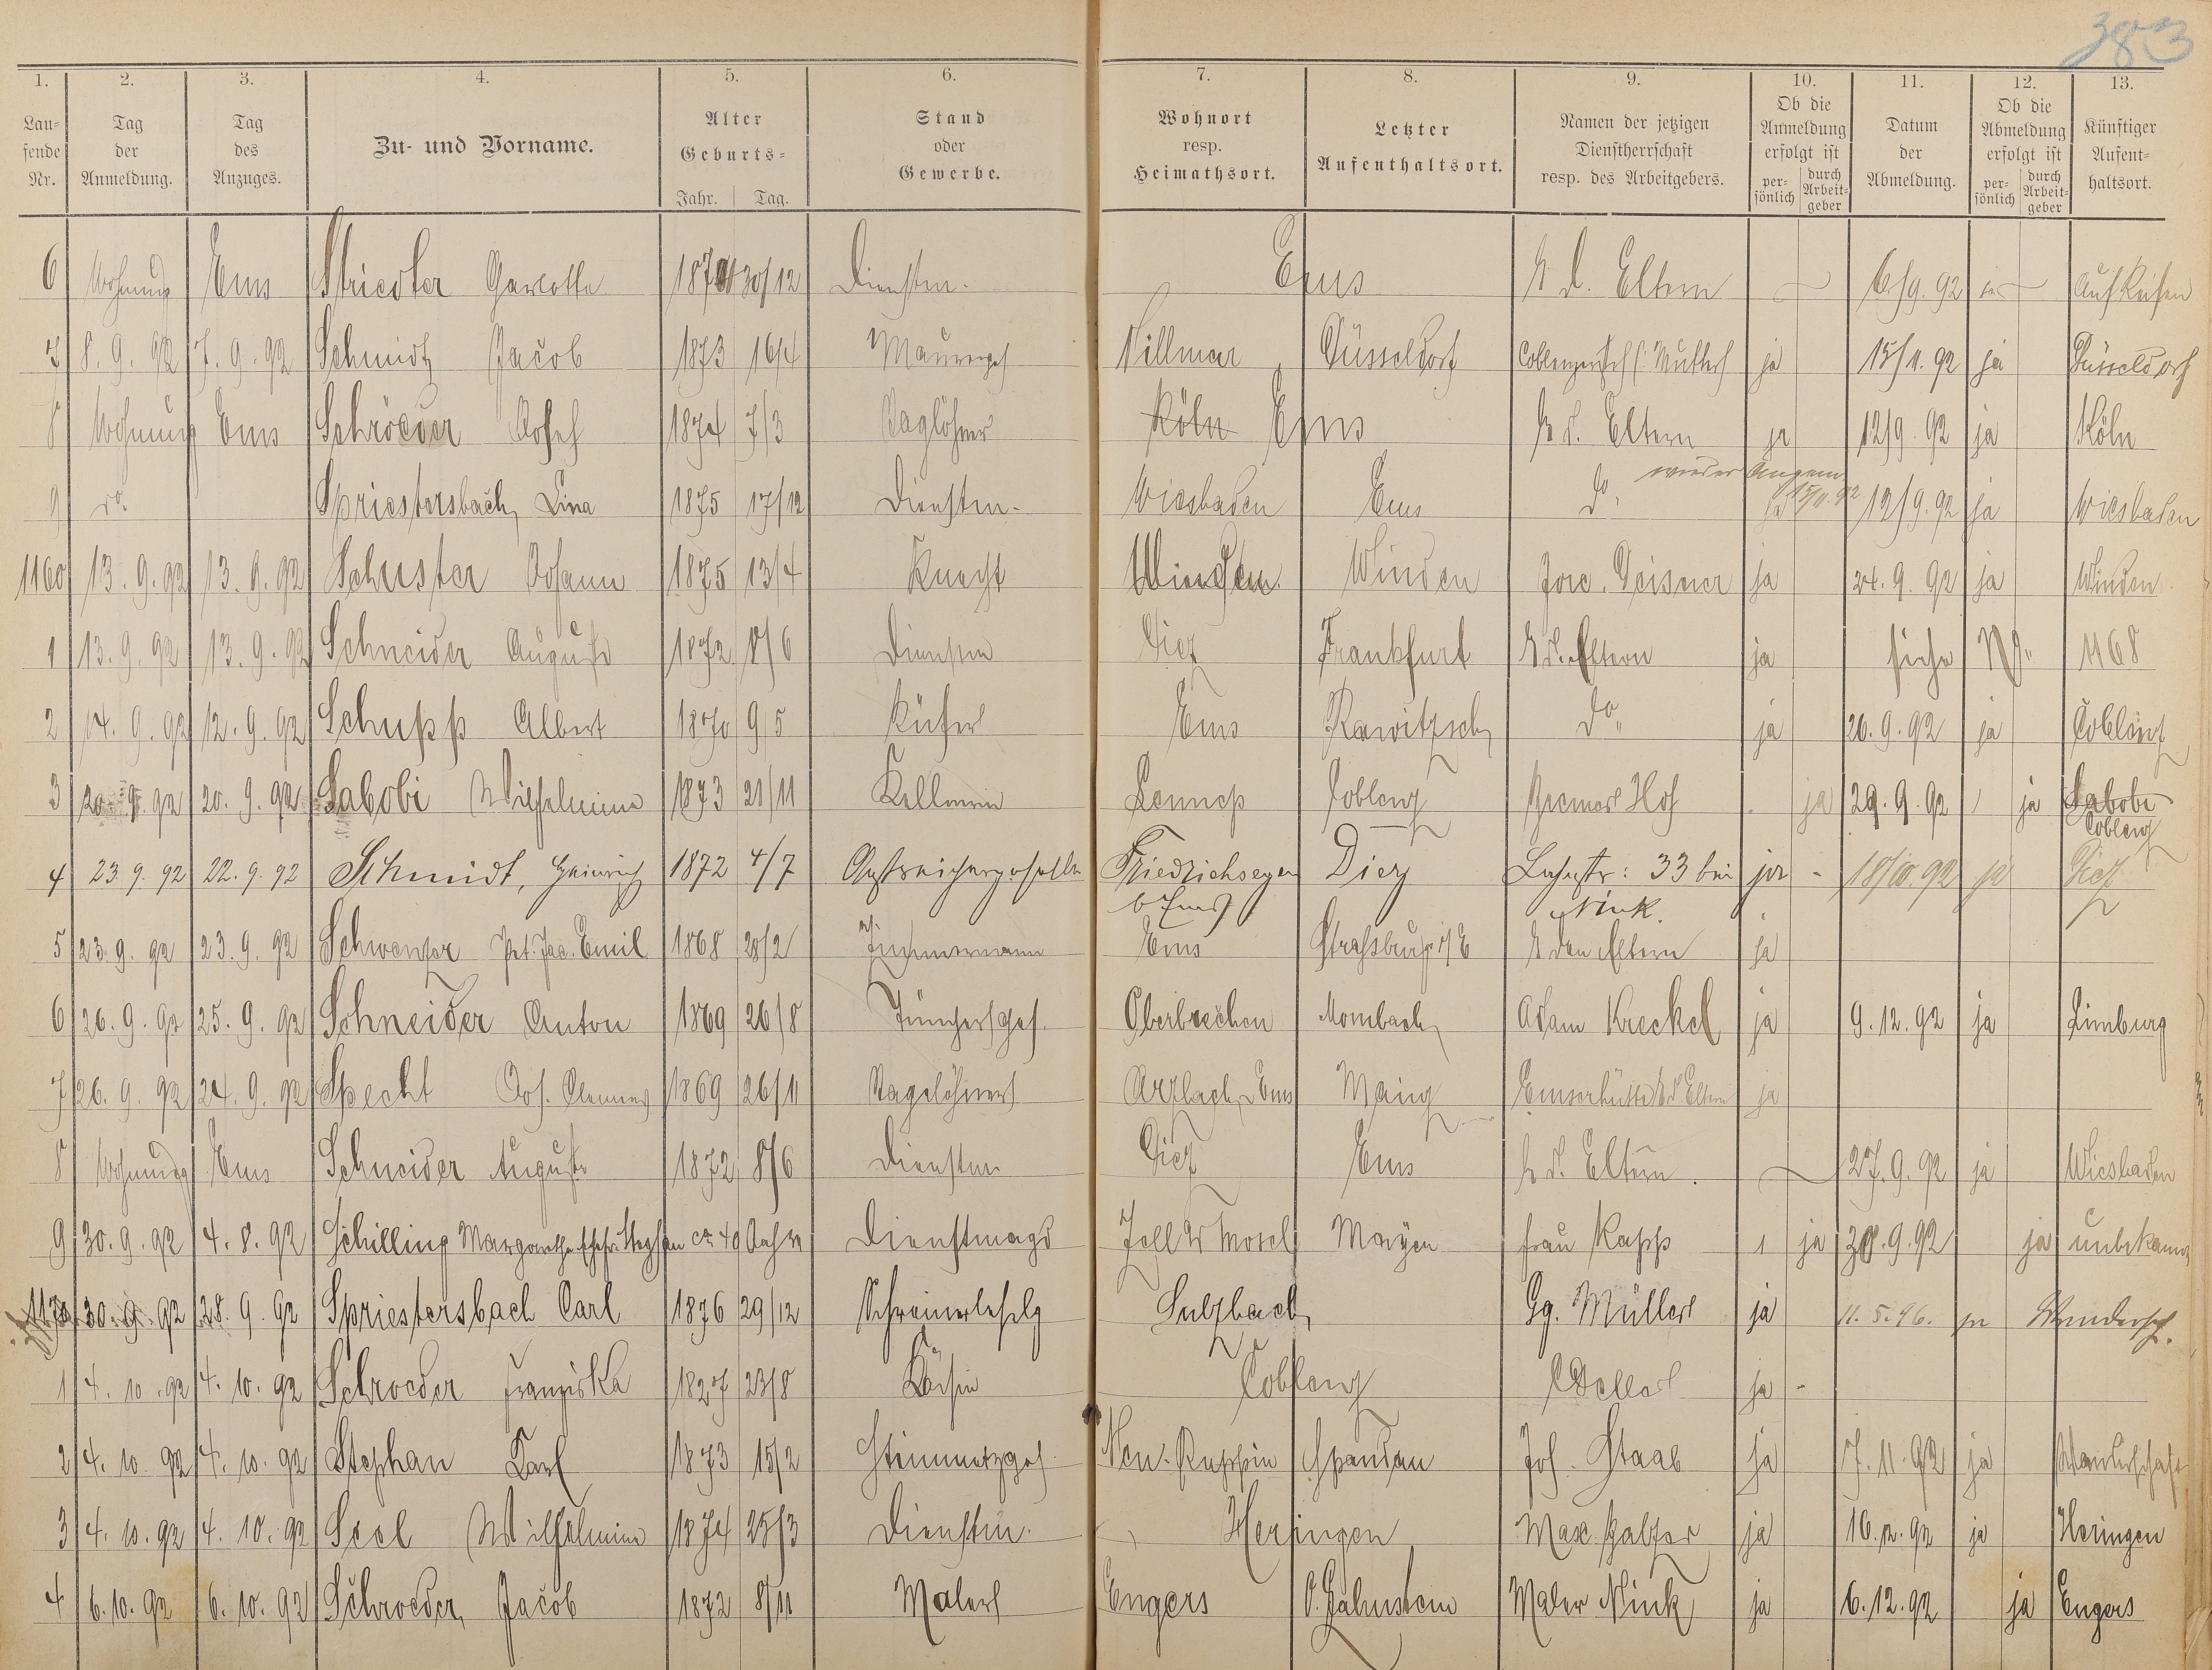 383
1. 2. 3. 4. 5. 6. 7. 8. 9. 10. 11. 12. 13.
Lau=fende Nr. Tag der Anmeldung. Tag des Anzuges. Zu- und Vorname. Alter Geburts= Jahr. Tag. Stand oder Gewerbe. Wohnort resp. Heimathsort. Letzter Aufenthaltsort. Namen der jetzigen Dienstherrschaft resp. des Arbeitgebers. Ob die Anmeldung erfolgt ist per=sönlich durch Arbeit=geber Datum der Abmeldung. Ob die Abmeldung erfolgt ist per=sönlich durch Arbeit=geber Künftiger Aufent=haltsort.
6 Wohnung Ems Striedter 30/12 Dienstm. Ems b. d. Eltern 6/9. 92 Auf Reisen
7 8. 9. 92 7. 9. 92 Schmidt Jacob 1873 16/4 Maurerges Villmar Düsseldorf ja 15/11. 92 ja Düsseldorf
8 Wohnung Ems Schröder Josef 1874 7/3 Taglöhner Köln Ems b. d. Eltern ja 12/9. 92 ja Köln
9 do. Spriestersbach, Lina 1875 17/12 Dienstm. Wiesbaden Ems do. wieder Angem 15/11. 92 ja 12/9. 92 ja Wiesbaden
1160 13. 9. 92 13. 9. 92 Schuster Johann 1875 13/4 Knecht Winden Winden Deisner ja 24. 9. 92 ja Winden
1 13. 9. 92 13. 9. 92 Schneider Auguste 1872 8/6 Dienstm Diez Frankfurt b d. Eltern ja siehe No. 1168
2 14. 9. 92 12. 9. 92 Schupp Albert 1870 9/5 Küfer Ems Rawitzsch do. ja 20. 9. 92 ja Coblenz
3 20. 9. 92 20. 9. 92 Sabobi Wilhelmine 1873 21/11 Kellnerin Lennep Coblenz Bremer Hof ja 29. 9. 92 ja Sabobi Coblenz
4 23. 9. 92 22. 9. 92 Schmidt, Heinrich 1872 4/7 Anstreichergeselle Friedrichsegen b Ems Diez 33 bei Nink. ja - 18/10. 92 ja Diez
5 23. 9. 92 23. 9. 92 Schwenzer Pet. Jac. Emil 1868 28/2 Zimmermann Ems Strassburg i/E b den Eltern ja
6 26. 9. 92 25. 9. 92 Schneider Anton 1869 26/8 Tünchergsel. Oberbrechen Mombach Adam Kreckel ja 9. 12. 92 ja Limburg
7 26. 9. 92 24. 9. 92 Specht Jos. Clemens 1869 26/11 Tagelöhner Arzbach b Ems Mainz Emserhütte b. d. Eltern ja
8 Wohnung Ems Schneider Auguste 1872 8/6 Dienstm Diez Ems b. d. Eltern. 27. 9. 92 ja Wiesbaden
9 30. 9. 92 4. 8. 92 Schilling Margarethe Ehefr. Stephan ca. 40 Jahre Dienstmagd Zell a/d Mosel Mayen frau Kapp ja 30. 9. 92 ja unbekannt
1170 30. 9. 92 28. 9. 92 Spriestersbach Carl 1876 29/12 Schreinerlehrlg Sulzbach Gg. Müller ja 11. 5. 96. ja Wandersch.
1 4. 10. 92 4. 10. 92 Schroeder Franziska 1827 23/8 Köchin Coblenz ja -
2 4. 10. 92 4. 10. 92 Stephan Karl 1873 15/2 Steinmetzges. Neu-Ruppin Spandau Jos. Staab ja 7. 11. 92 ja Wanderschaft
3 4. 10. 92 4. 10. 92 Seel Wilhelmine 1874 25/3 Dienstm. Heringen Max Balzer ja 16. 12. 92 ja Heringen
4 6. 10. 92 6. 10. 92 Schroeder, Jacob 1872 8/11 Maler Engers O. Lahnstein Maler Nink ja 6. 12. 92 ja Engers